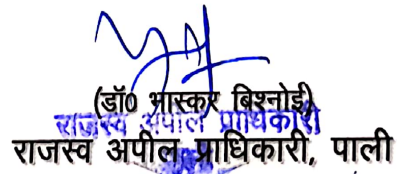 (डॉ0 भास्कर बिश्नोई)
राजस्व अपील प्राधिकारी
राजस्व अपील प्राधिकारी, पाली